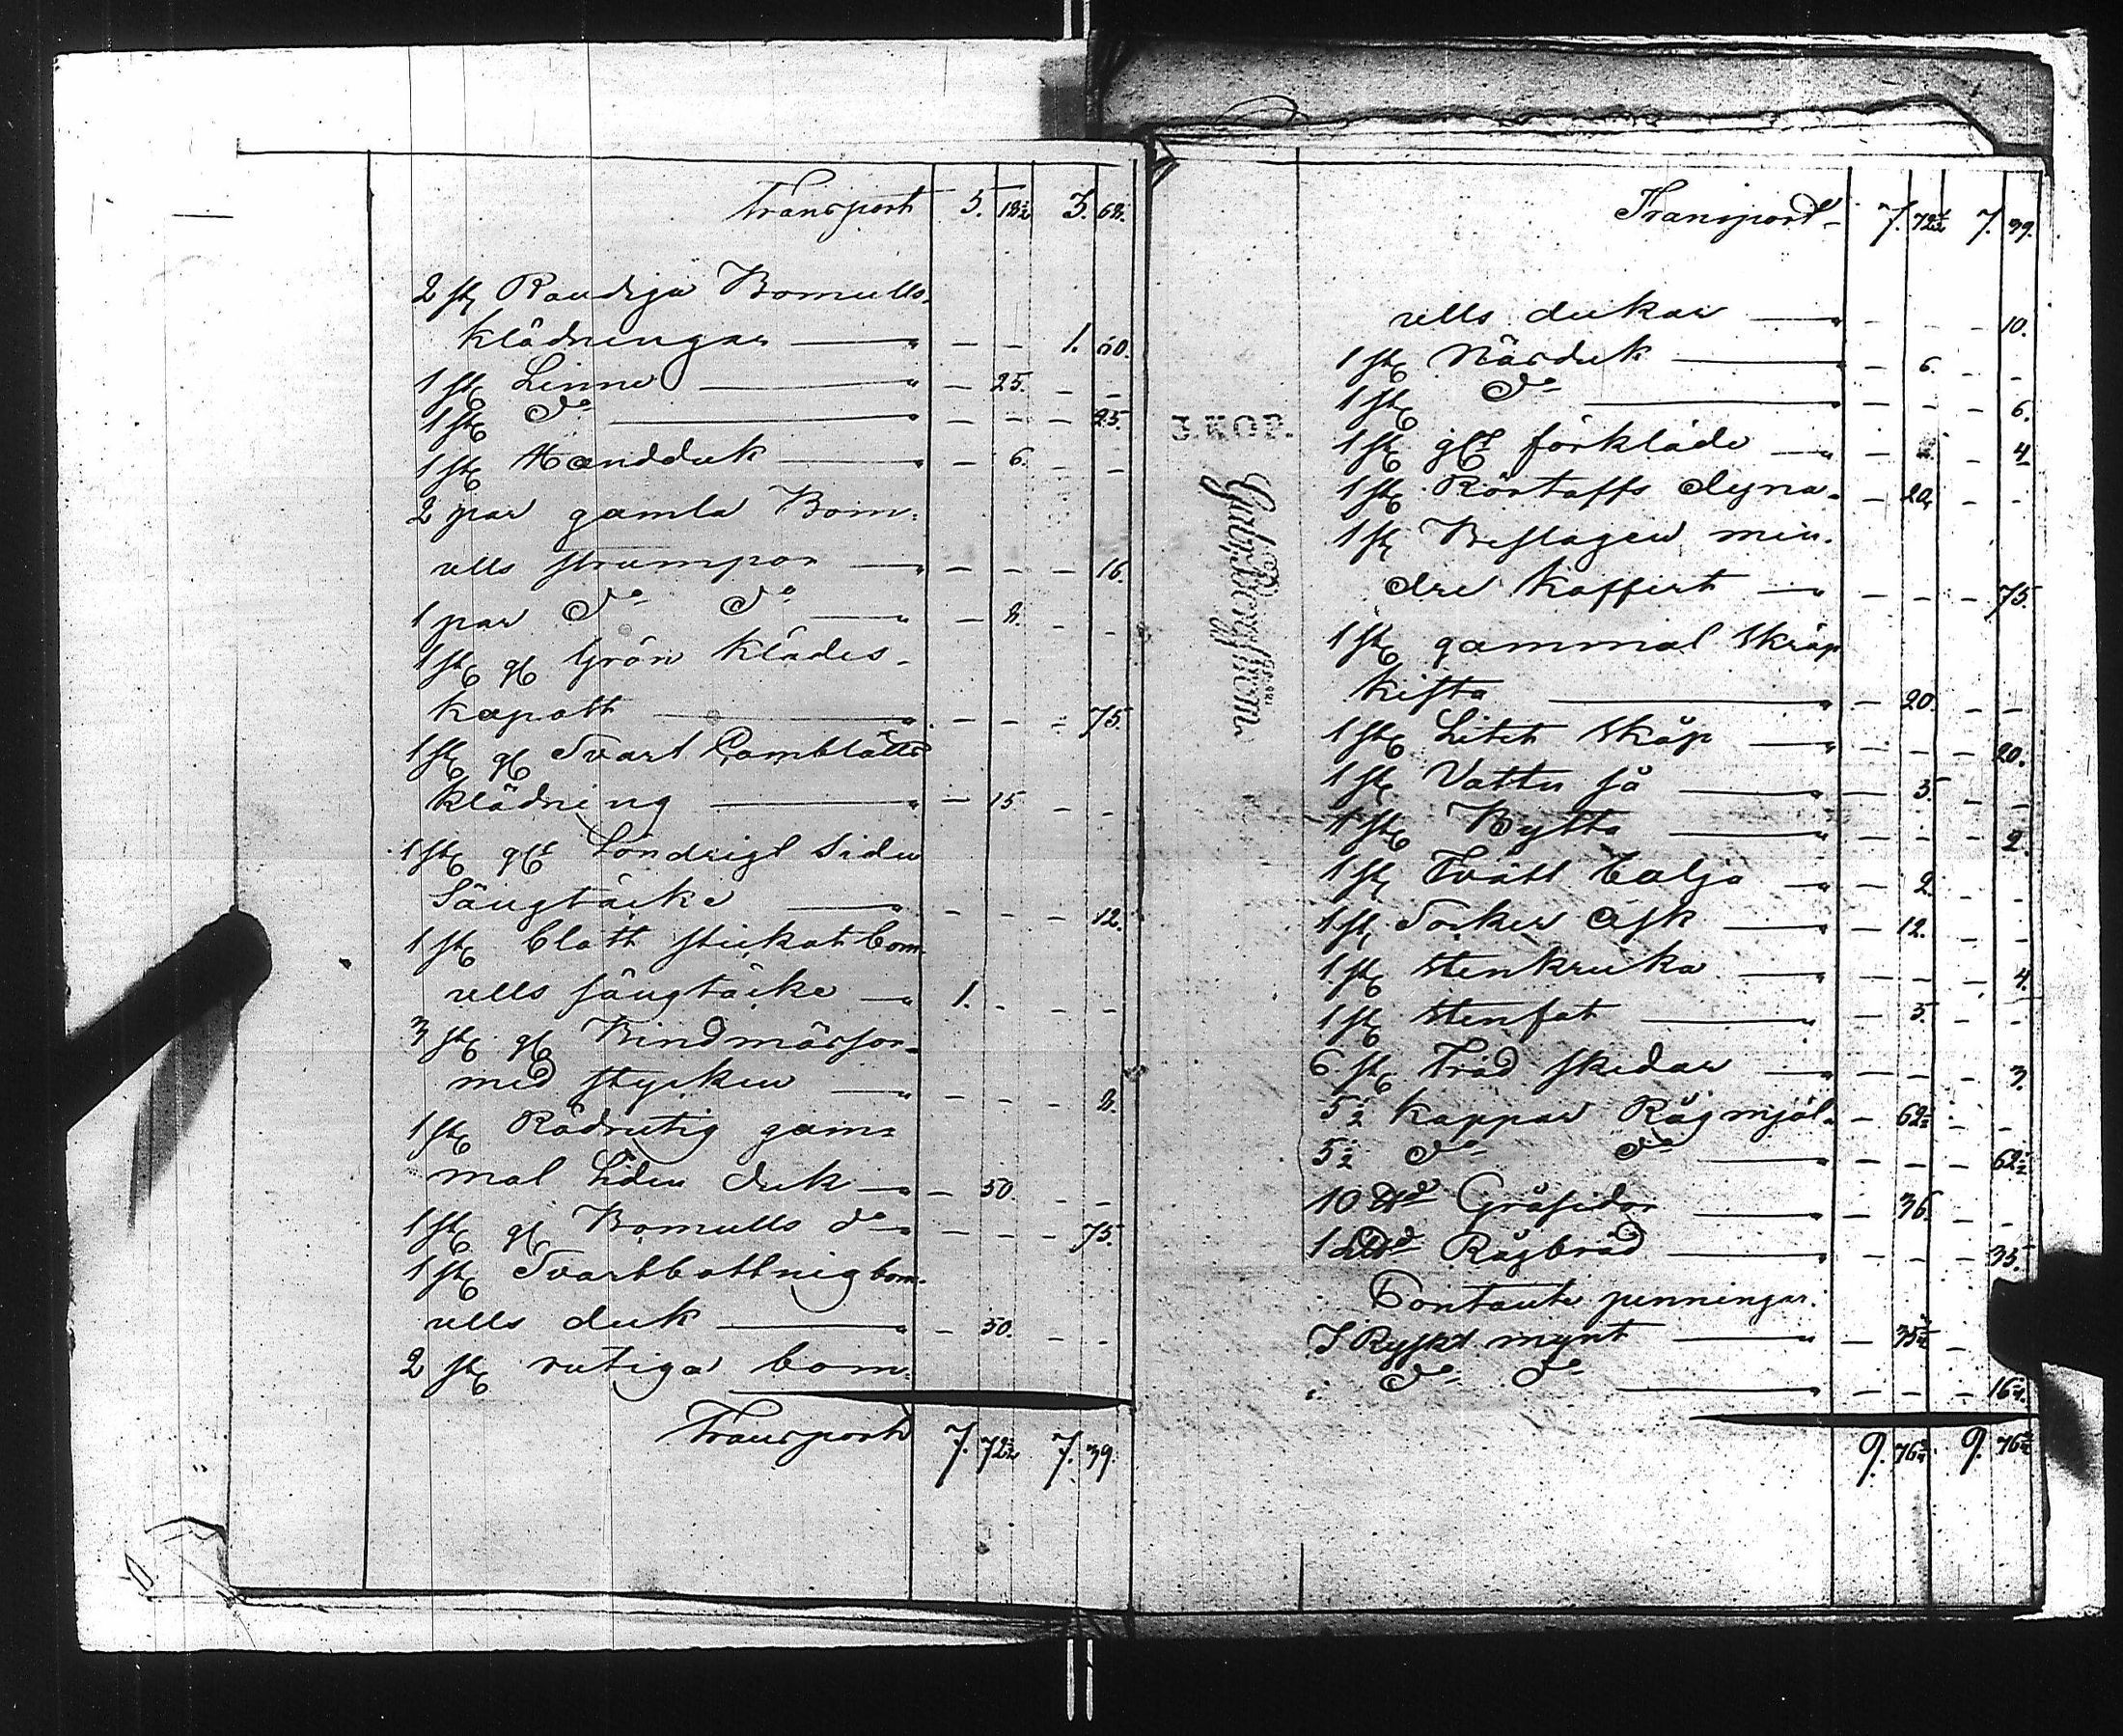 Transport 5. 18½ 3. 68.
2 st Randiga Bomulls-
klädningar — " — — 1. 50.
1 st Linne — " — 25. — —
1 st D:o — " — — — 25.
1 st Handduk — " — 6. — —
2 par gamla Bom-
ulls strumpor — " — — — 16.
1 par D:o D:o — " — 8. — —
1 st gl Grön Klädes-
kapott — " — — — 75.
1 st gl Svart Camblätts
klädning — " — 15 — —
1 st glt Söndrigt Siden
Sängtäcke — " — — — 12.
1 st blått stickat bom-
ulls sängtäcke — " 1. — — —
3 st gl Bindmössor
med stycken — " — — — 8.
1 st Rödrutig gam-
mal Siden duk — " — 50. — —
1 st gl Bomulls d:o — " — — — 75.
1 st Svartbottnig bom-
ulls duk — " — 50. — —
2 st rutiga bom-
Transport 7. 72½ 7. 39.
Transport 7. 72½ 7. 39.
ulls dukar — " — — — 10.
1 st Näsduk — " — 6. — —
1 st D:o — " — — — 6.
1 st glt förkläde — " — — 4
1 st Rörtaffs dyna — 20. — —
1 st Beslagen min-
dre Koffert — " — — — 75.
1 st gammal Skräp
kista — " — 20. — —
1 st Litet Skåp — " — — — 20.
1 st Vattu så — " — 3. — —
1 st Bytta — " — — — 2.
1 st Tvätt balja — " — 2. — —
1 st Socker Ask — " — 12. — —
1 st Stenkruka — " — — — 4.
1 st Stenfat — " — 5. — —
6 st Träd skedar — " — — — 3.
5½ Kappar Rågmjöl — 62½ — —
5½ D:o D:o — " — — — 62½
10 Gråsidor — " — 36. — —
1 Rågbröd — " — — — 35.
Contante penningar.
I Ryskt mynt — " — 35¾ —
" D:o D:o — " — — — 16¼
9. 76¾ 9. 76¾
J.KOP.